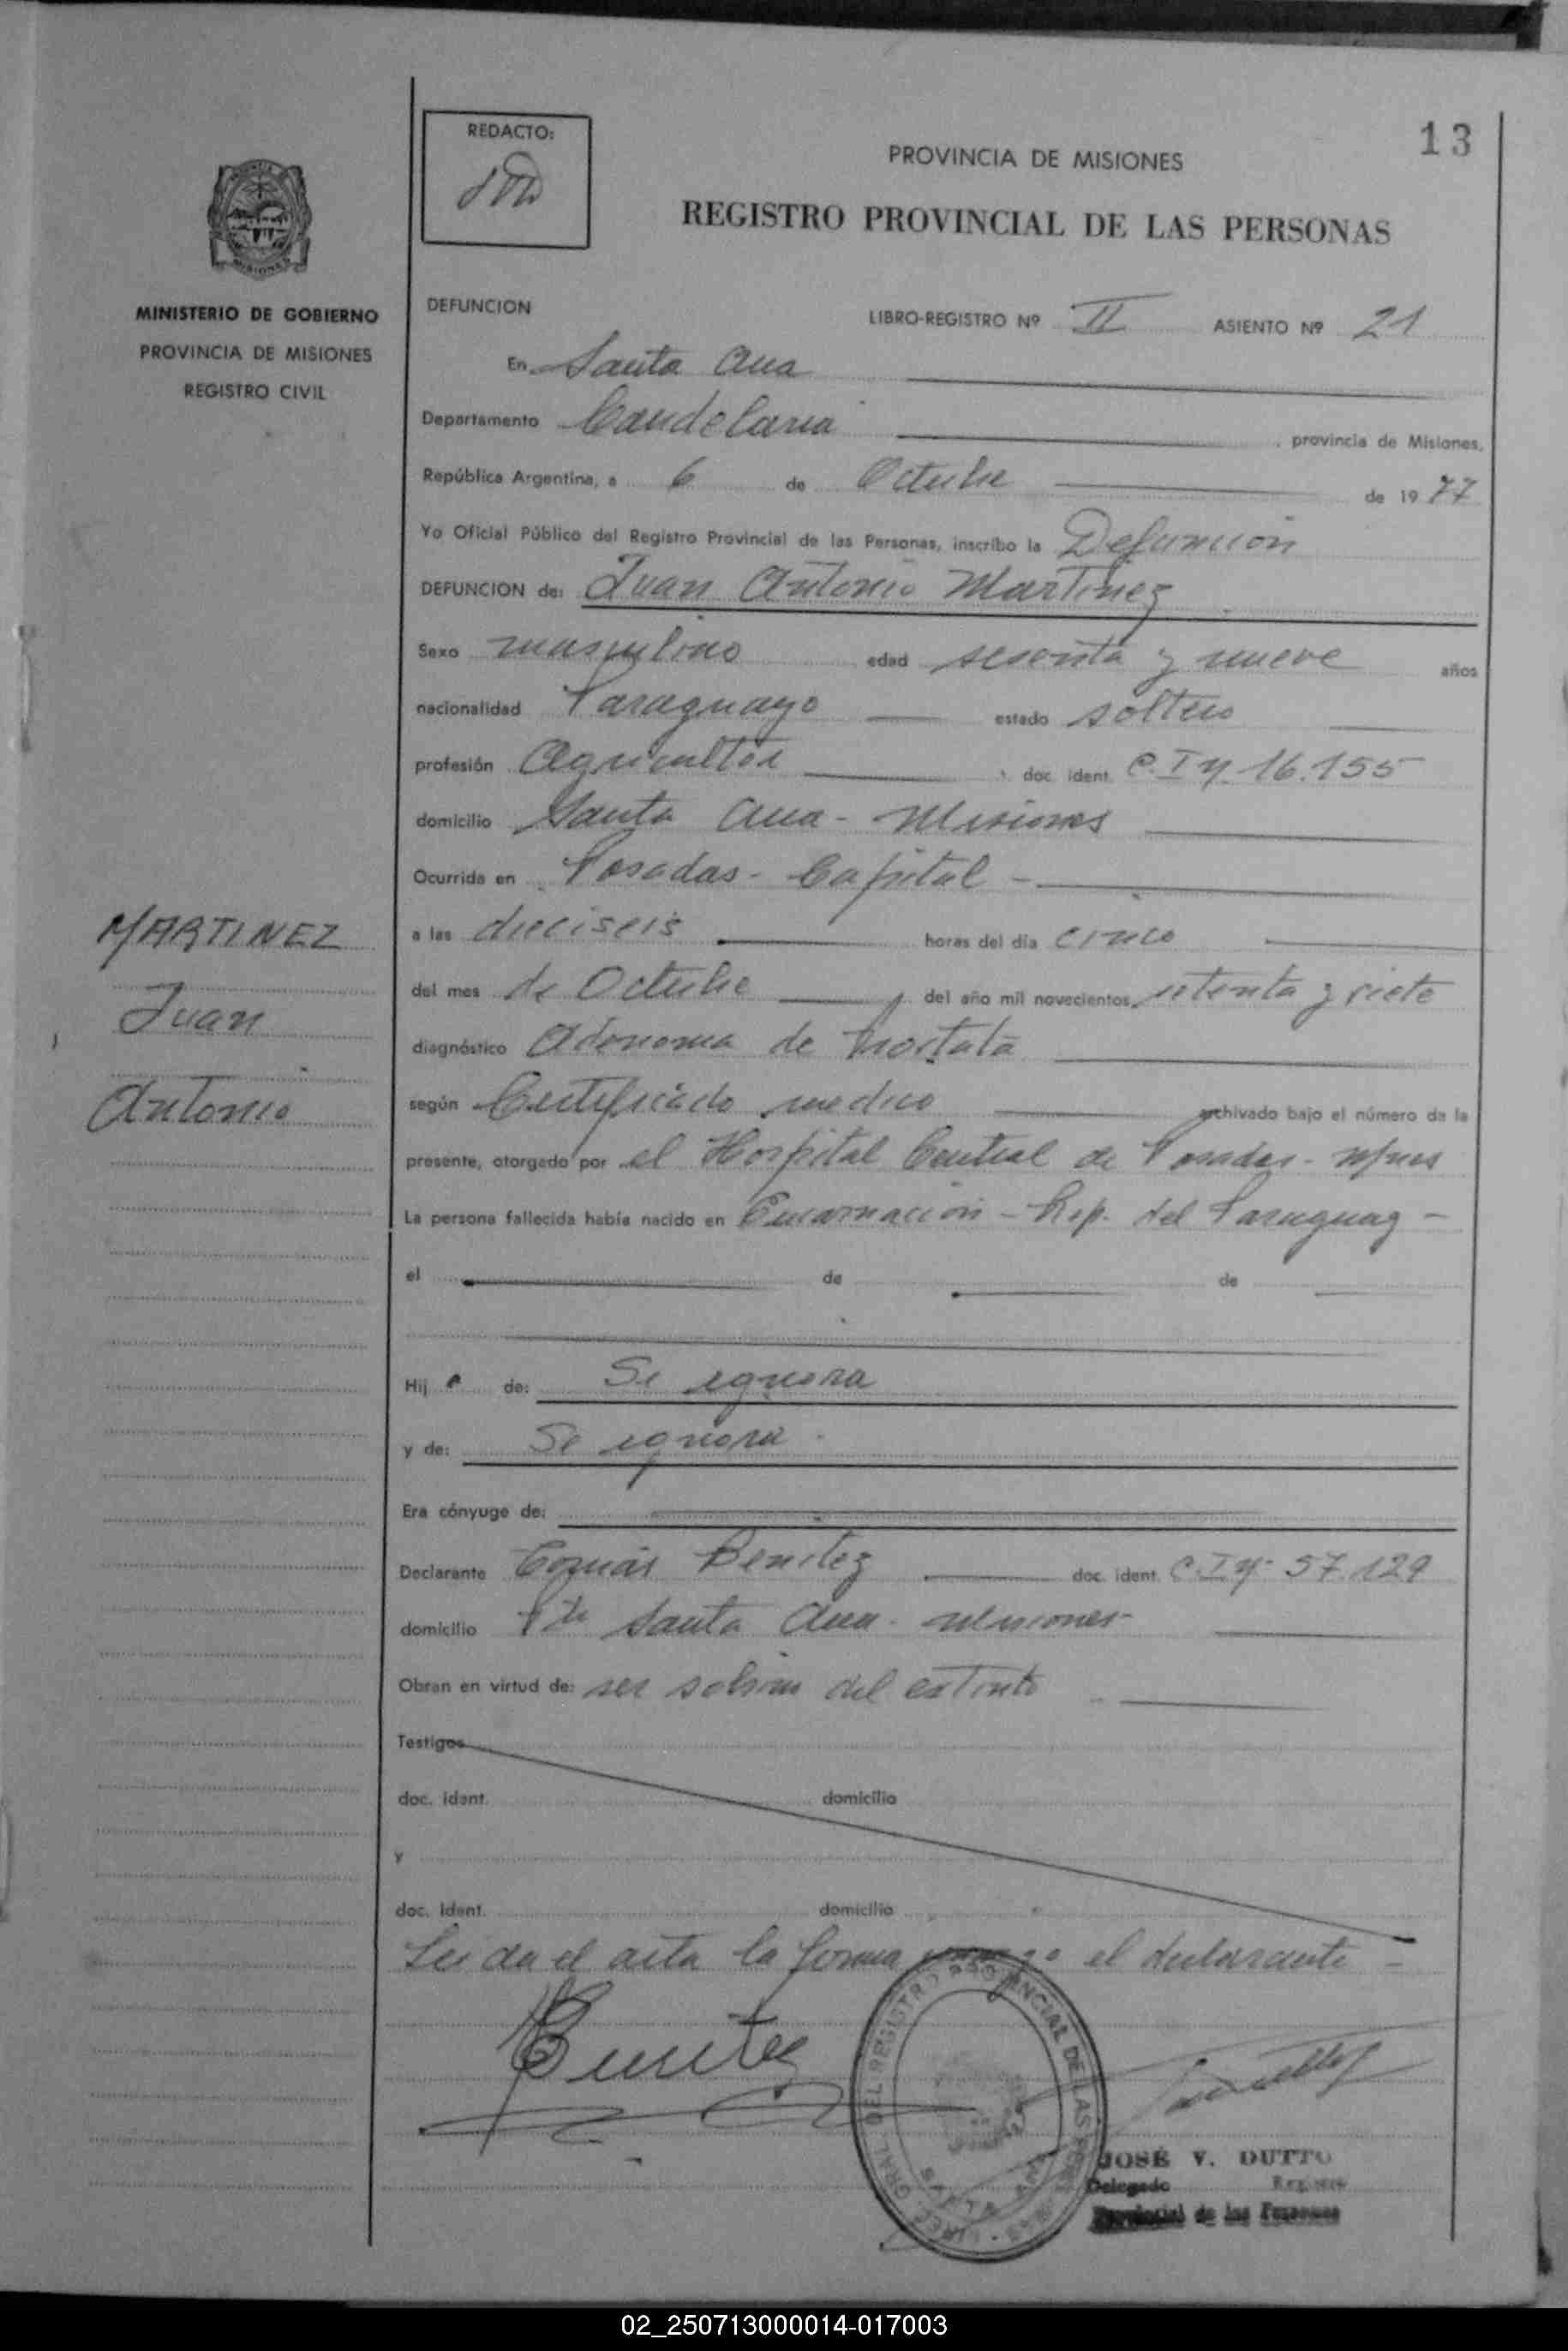 13
REDACTO:
PROVINCIA DE MISIONES
REGISTRO PROVINCIAL DE LAS PERSONAS
MISIONES
MINISTERIO DE GOBIERNO
PROVINCIA DE MISIONES
REGISTRO CIVIL
DEFUNCION
LIBRO-REGISTRO Nº II ASIENTO Nº 21
En Santa Ana
Departamento Candelaria , provincia de Misiones,
República Argentina, a 6 de Octubre de 1977
Yo Oficial Público del Registro Provincial de las Personas, inscribo la Defunción
DEFUNCION de: Juan Antonio Martinez
Sexo masculino edad sesenta y nueve años
nacionalidad Paraguayo estado soltero
profesión Agricultor doc. ident. C.I Nº 16.155
domicilio Santa Ana - Misiones
Ocurrida en Posadas - Capital -
a las dieciseis horas del día cinco
del mes de Octubre del año mil novecientos setenta y siete
diagnóstico Adenoma de Prostata
según Certificado medico archivado bajo el número de la
presente, otorgado por el Hospital Central de Posadas - Mnes
La persona fallecida había nacido en Encarnación - Rep. del Paraguay -
el de de
Hijo de: Se ignora
y de: Se ignora
Era cónyuge de:
Declarante Tomás Benitez doc. ident. C.I Nº 57.129
domicilio Pto Santa Ana - Misiones
Obran en virtud de: ser sobrino del extinto
Testigos
doc. ident. domicilio
y
doc. ident. domicilio
Leida el acta la firma el declarante -
MARTINEZ
Juan
Antonio
Benitez
DEL REGISTRO PROVINCIAL DE LAS
JOSÉ V. DUTTO
Delegado Registro
Provincial de las Personas
02_250713000014-017003